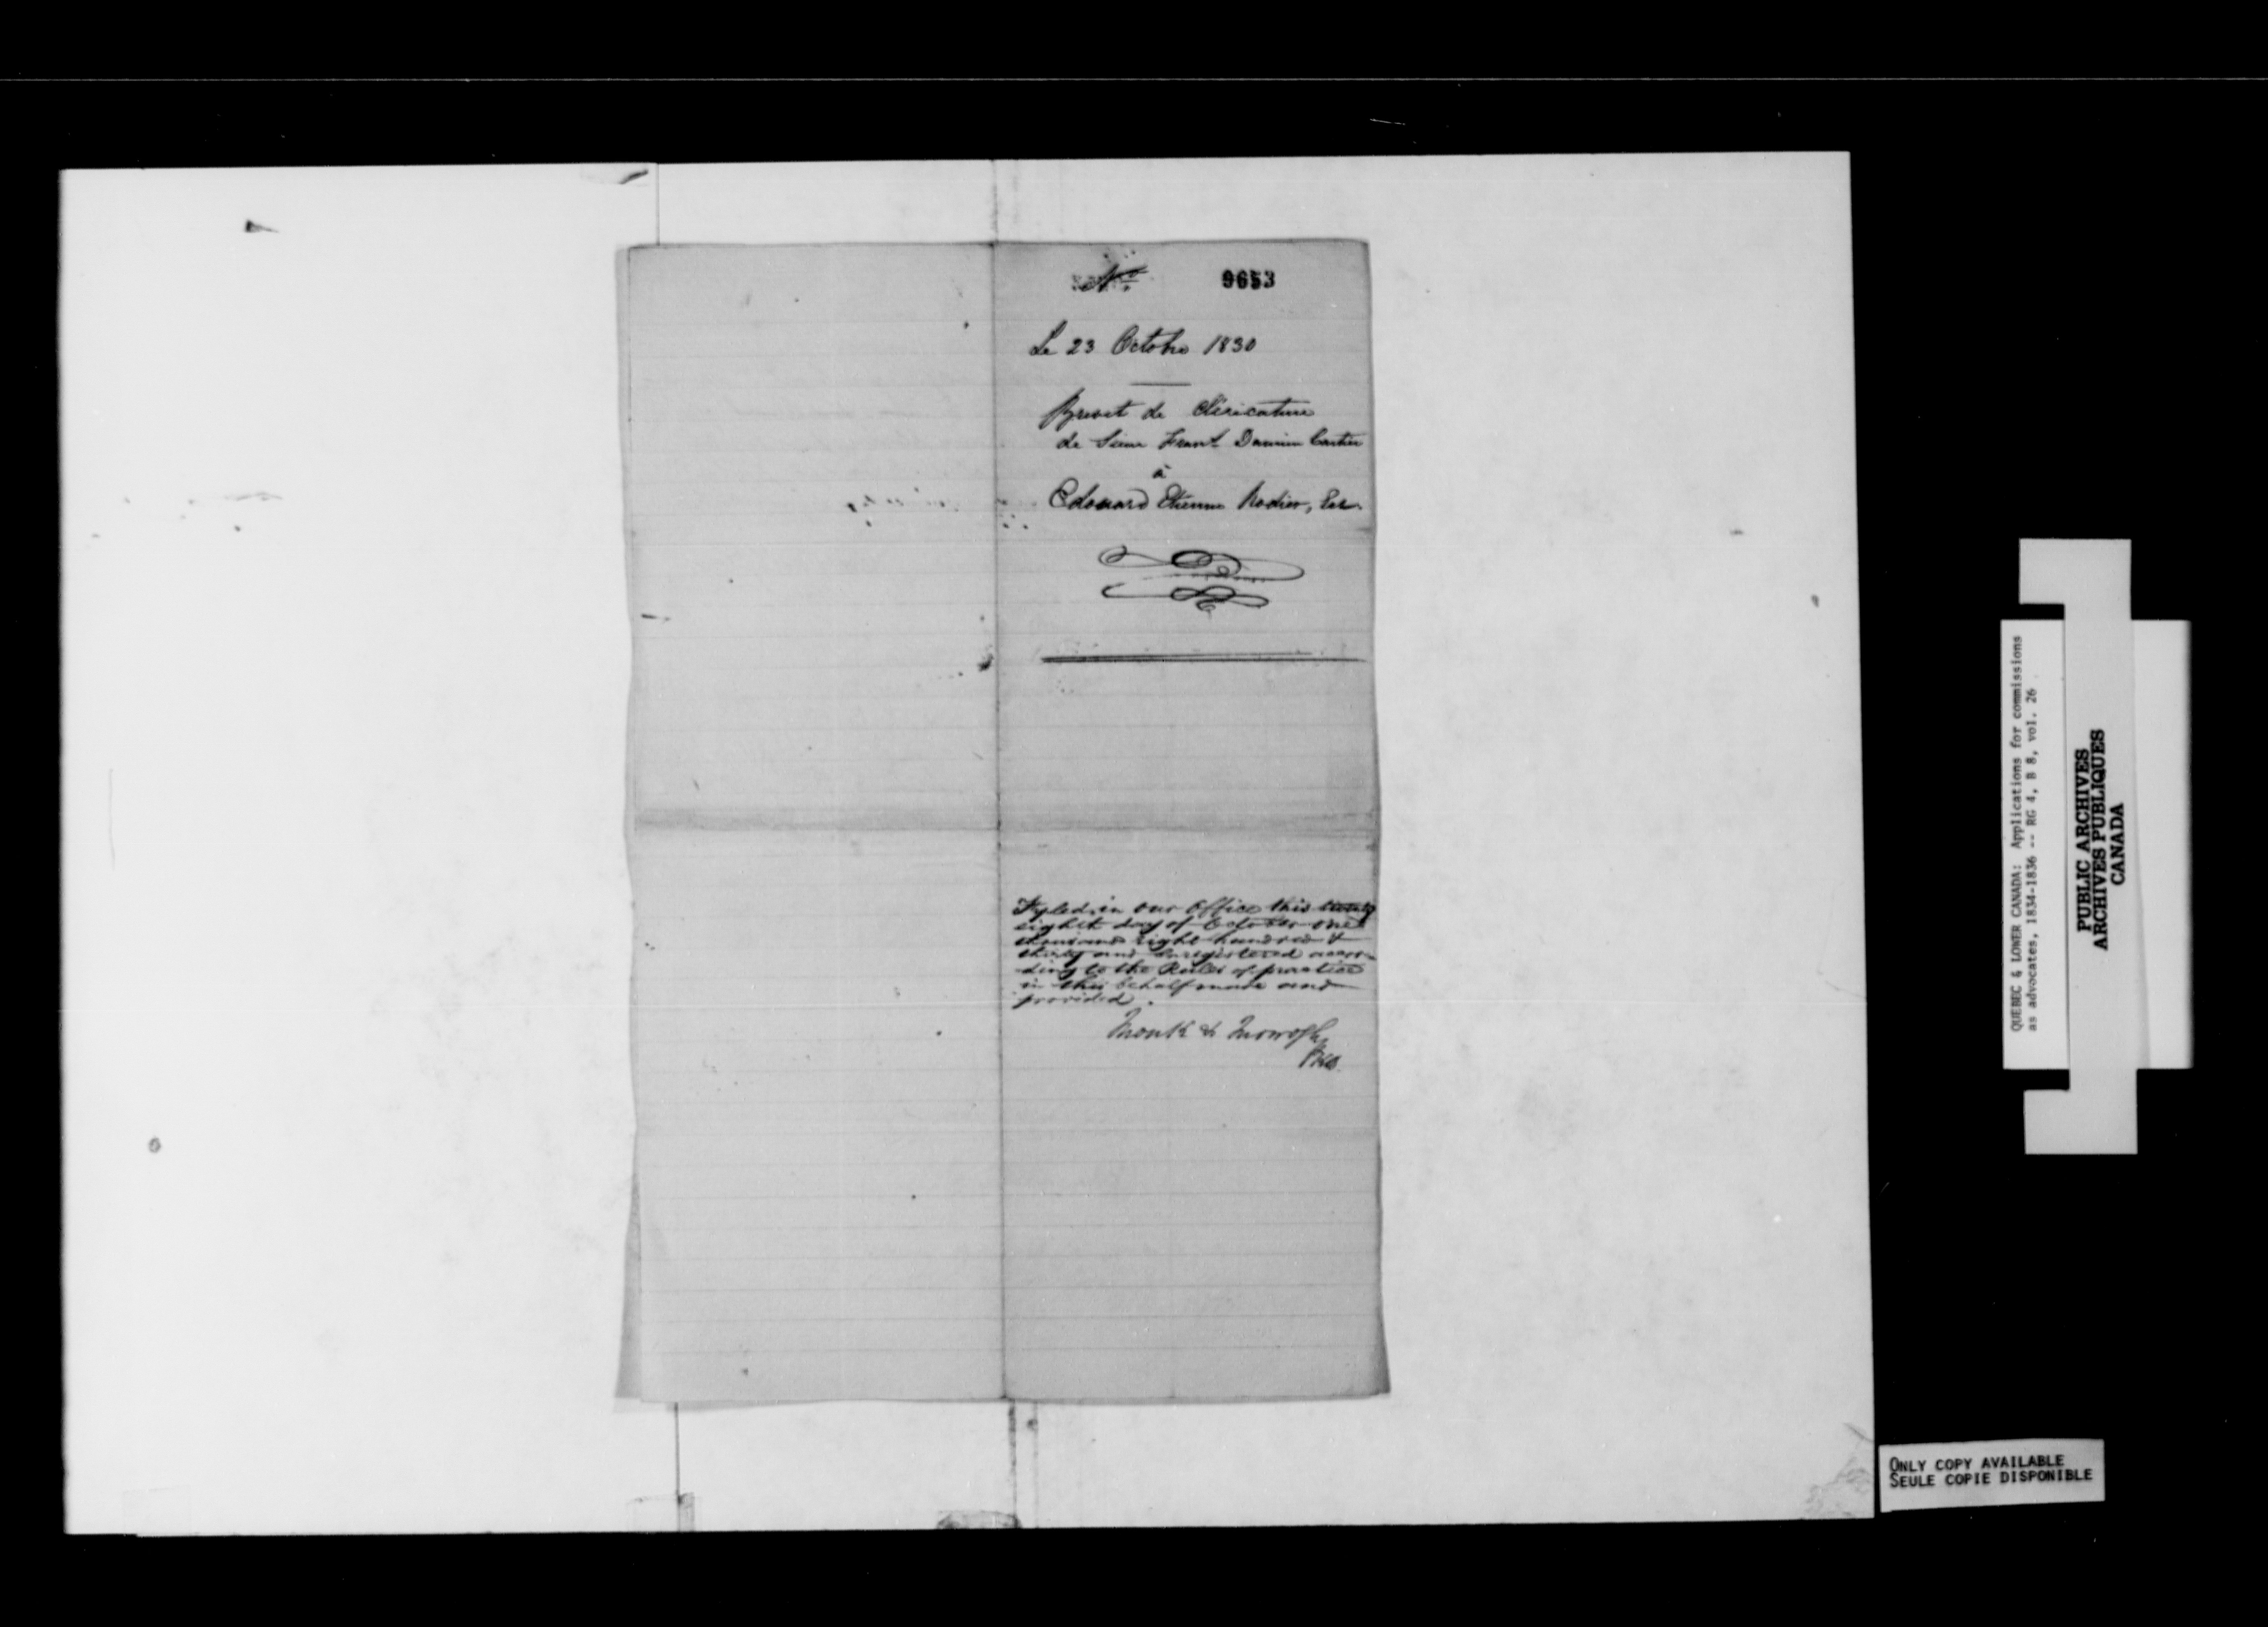 No. 9653
Le 23 Octobre 1830
Brevet de Cléricature
de Sieur Frans. Damien Cartier
à
Edouard Etienne Rodier, Ecr.
Fyled in our Office this twenty
eighth day of October one
thousand eight hundred &
thirty and Enregistered accor-
ding to the Rules of practice
in this behalf made and
provided.
Monk & Morrogh
QUEBEC & LOWER CANADA: Applications for commissions
as advocates, 1834-1836 -- RG 4, B 8, vol. 26
PUBLIC ARCHIVES
ARCHIVES PUBLIQUES
CANADA
ONLY COPY AVAILABLE
SEULE COPIE DISPONIBLE